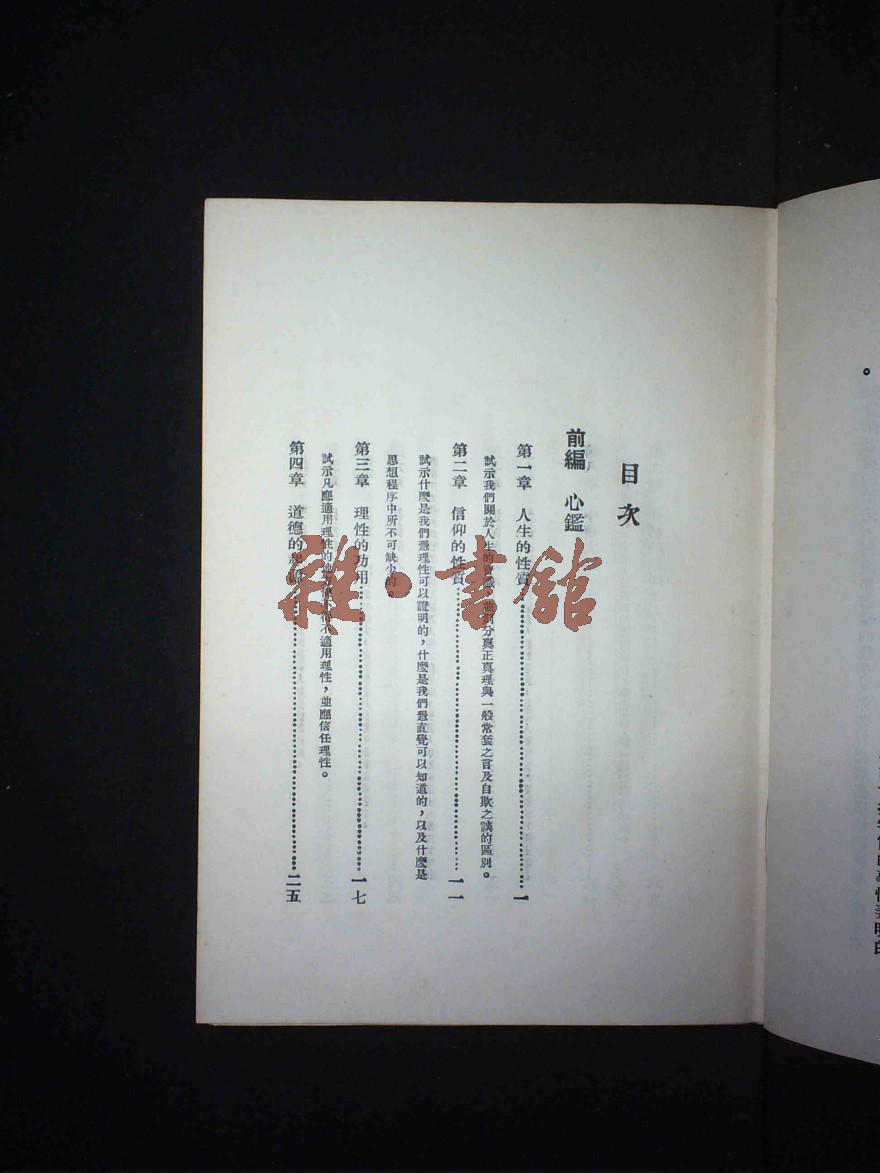 目次
前編 心鑑
第一章 人生的性質……一
試示我們關於人生的分真正真理與一般常套之言及自欺之談的區別。
第二章 信仰的性質……一一
試示什麼是我們憑理性可以證明的,什麼是我們憑直覺可以知道的,以及什麼是
思想程序中所不可缺少的。
第三章 理性的功用……一七
試示凡應適用理性的不適用理性,並應信任理性。
第四章 道德的……二五
雜·書館